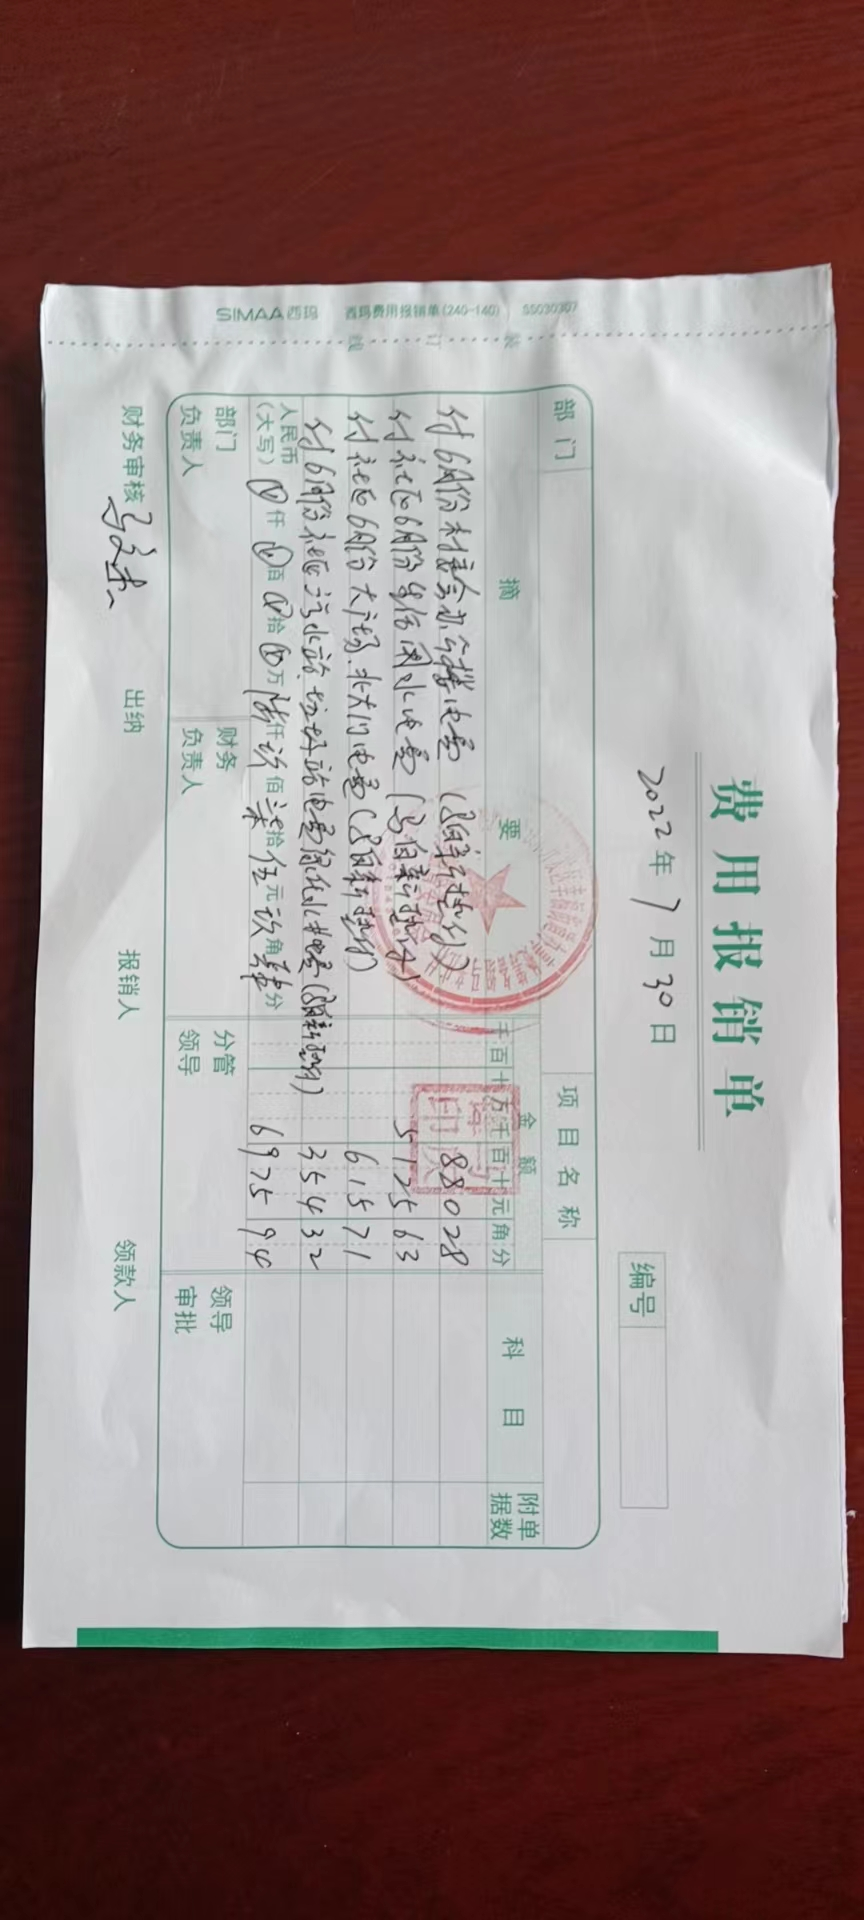 SIMAA西玛 西玛费用报销单(240-140) S5030307
装 订 线
费用报销单
2022年7月30日
编号
部门 项目名称
摘要 金额 科目 附单据数
千百十万千百十元角分
付6月份村委会办公楼电费 88028
付社区6月份生活用水电费 512563
付社区6月份大广场、北大门电费 61571
付6月份社区污水站、垃圾站电费绿化水井电费 35432
人民币(大写) ⊗仟⊗百⊗拾⊗万陆仟玖佰柒拾伍元玖角肆分 697594
部门负责人 财务负责人 分管领导 领导审批
财务审核 出纳 报销人 领款人